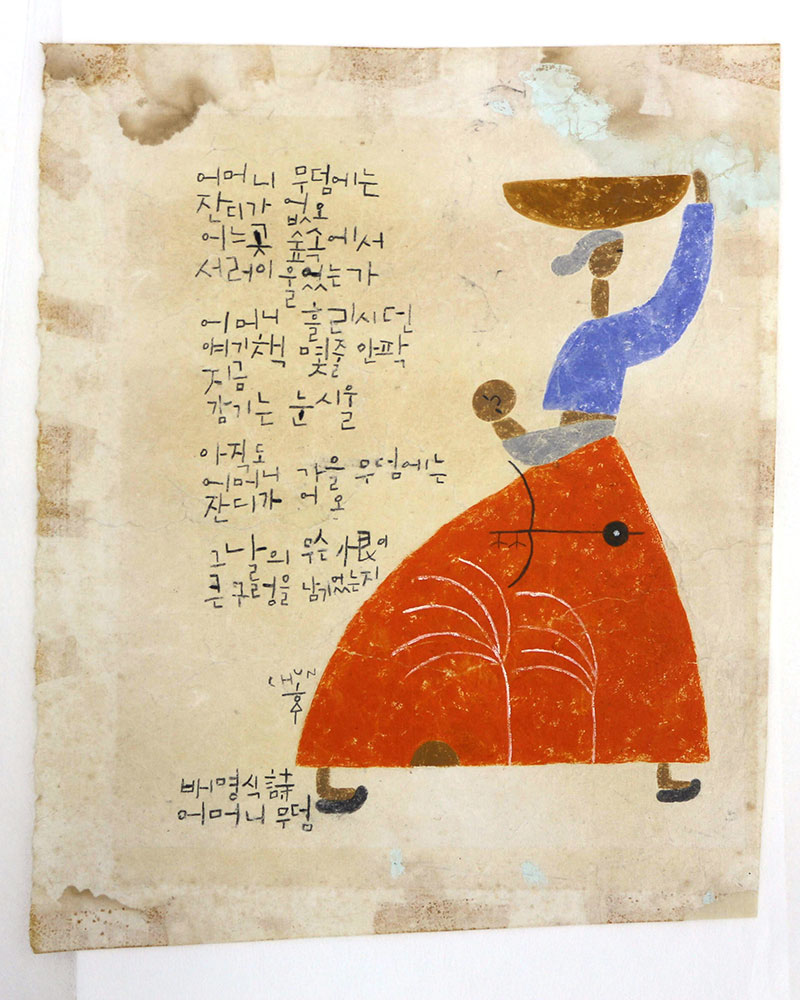 어머니 무덤에는
잔디가 없오
어느곳 숲속에서
서러이 울었는가
어머니 흘리시던
얘기책 몇줄 안팍
지금
감기는 눈시울
아직도
어머니 가을 무덤에는
잔디가
그날의 무슨 恨이
큰 구렁을 남기었는지
CHUN
배명식 詩
어머니 무덤